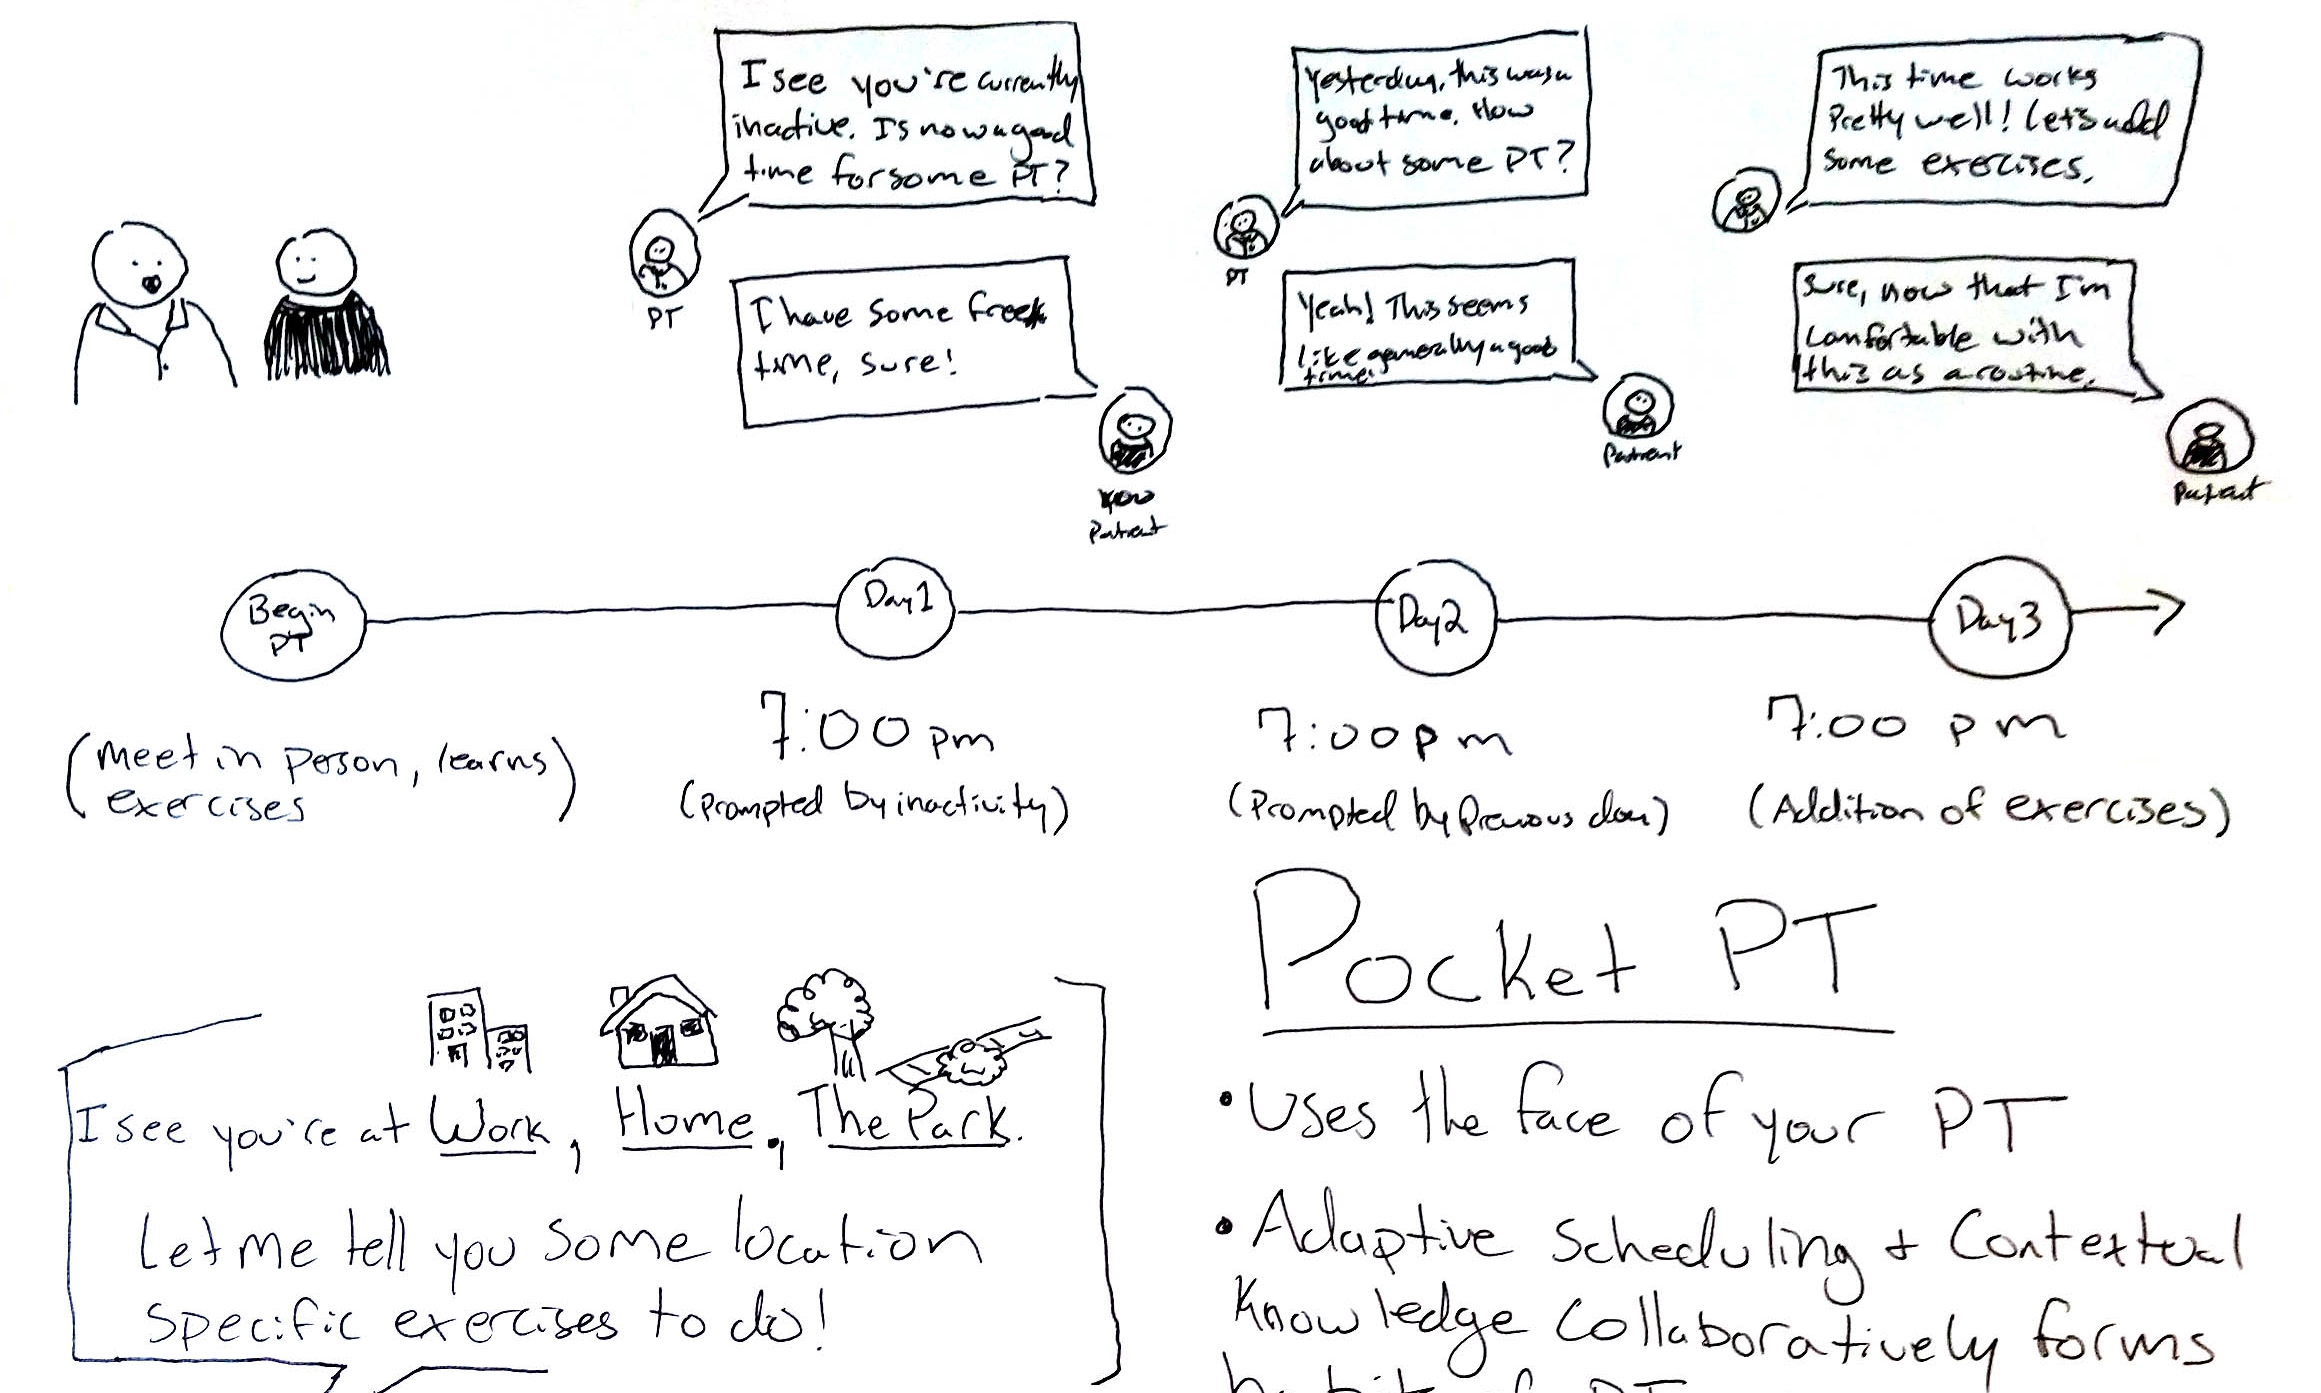 I see you're currently
inactive. Is now a good
time for some PT?
PT
I have some free
time, sure!
you
Patient
Yesterday, this was a
good time. How
about some PT?
PT
Yeah! This seems
like generally a good
time.
Patient
This time works
Pretty well! Let's add
some exercises.
Sure, now that I'm
comfortable with
this as a routine.
Patient
Begin
PT
Day 1
Day 2
Day 3
(Meet in person, learns
exercises)
7:00 pm
(Prompted by inactivity)
7:00 pm
(Prompted by Previous day)
7:00 pm
(Addition of exercises)
I see you're at Work, Home, The Park.
Let me tell you some location
specific exercises to do!
Pocket PT
• Uses the face of your PT
• Adaptive Scheduling + Contextual
Knowledge collaboratively forms